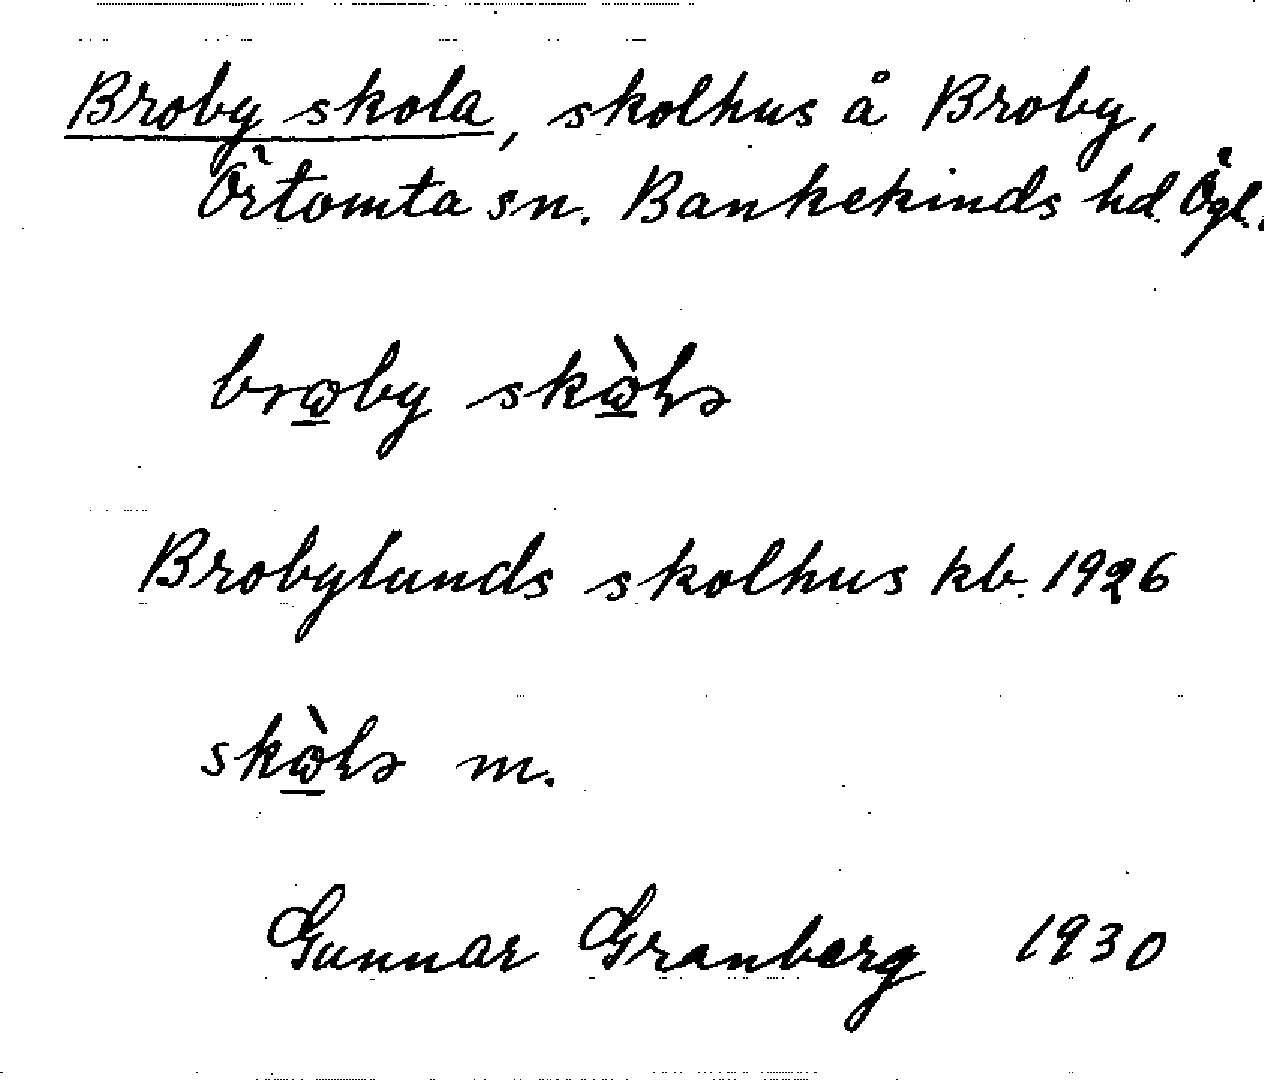 Broby skola, skolhus å Broby,
Örtomta sn. Bankekinds hd. Ögl.
broby
Brobylunds skolhus kb. 1926
m.
Gunnar Granberg 1930